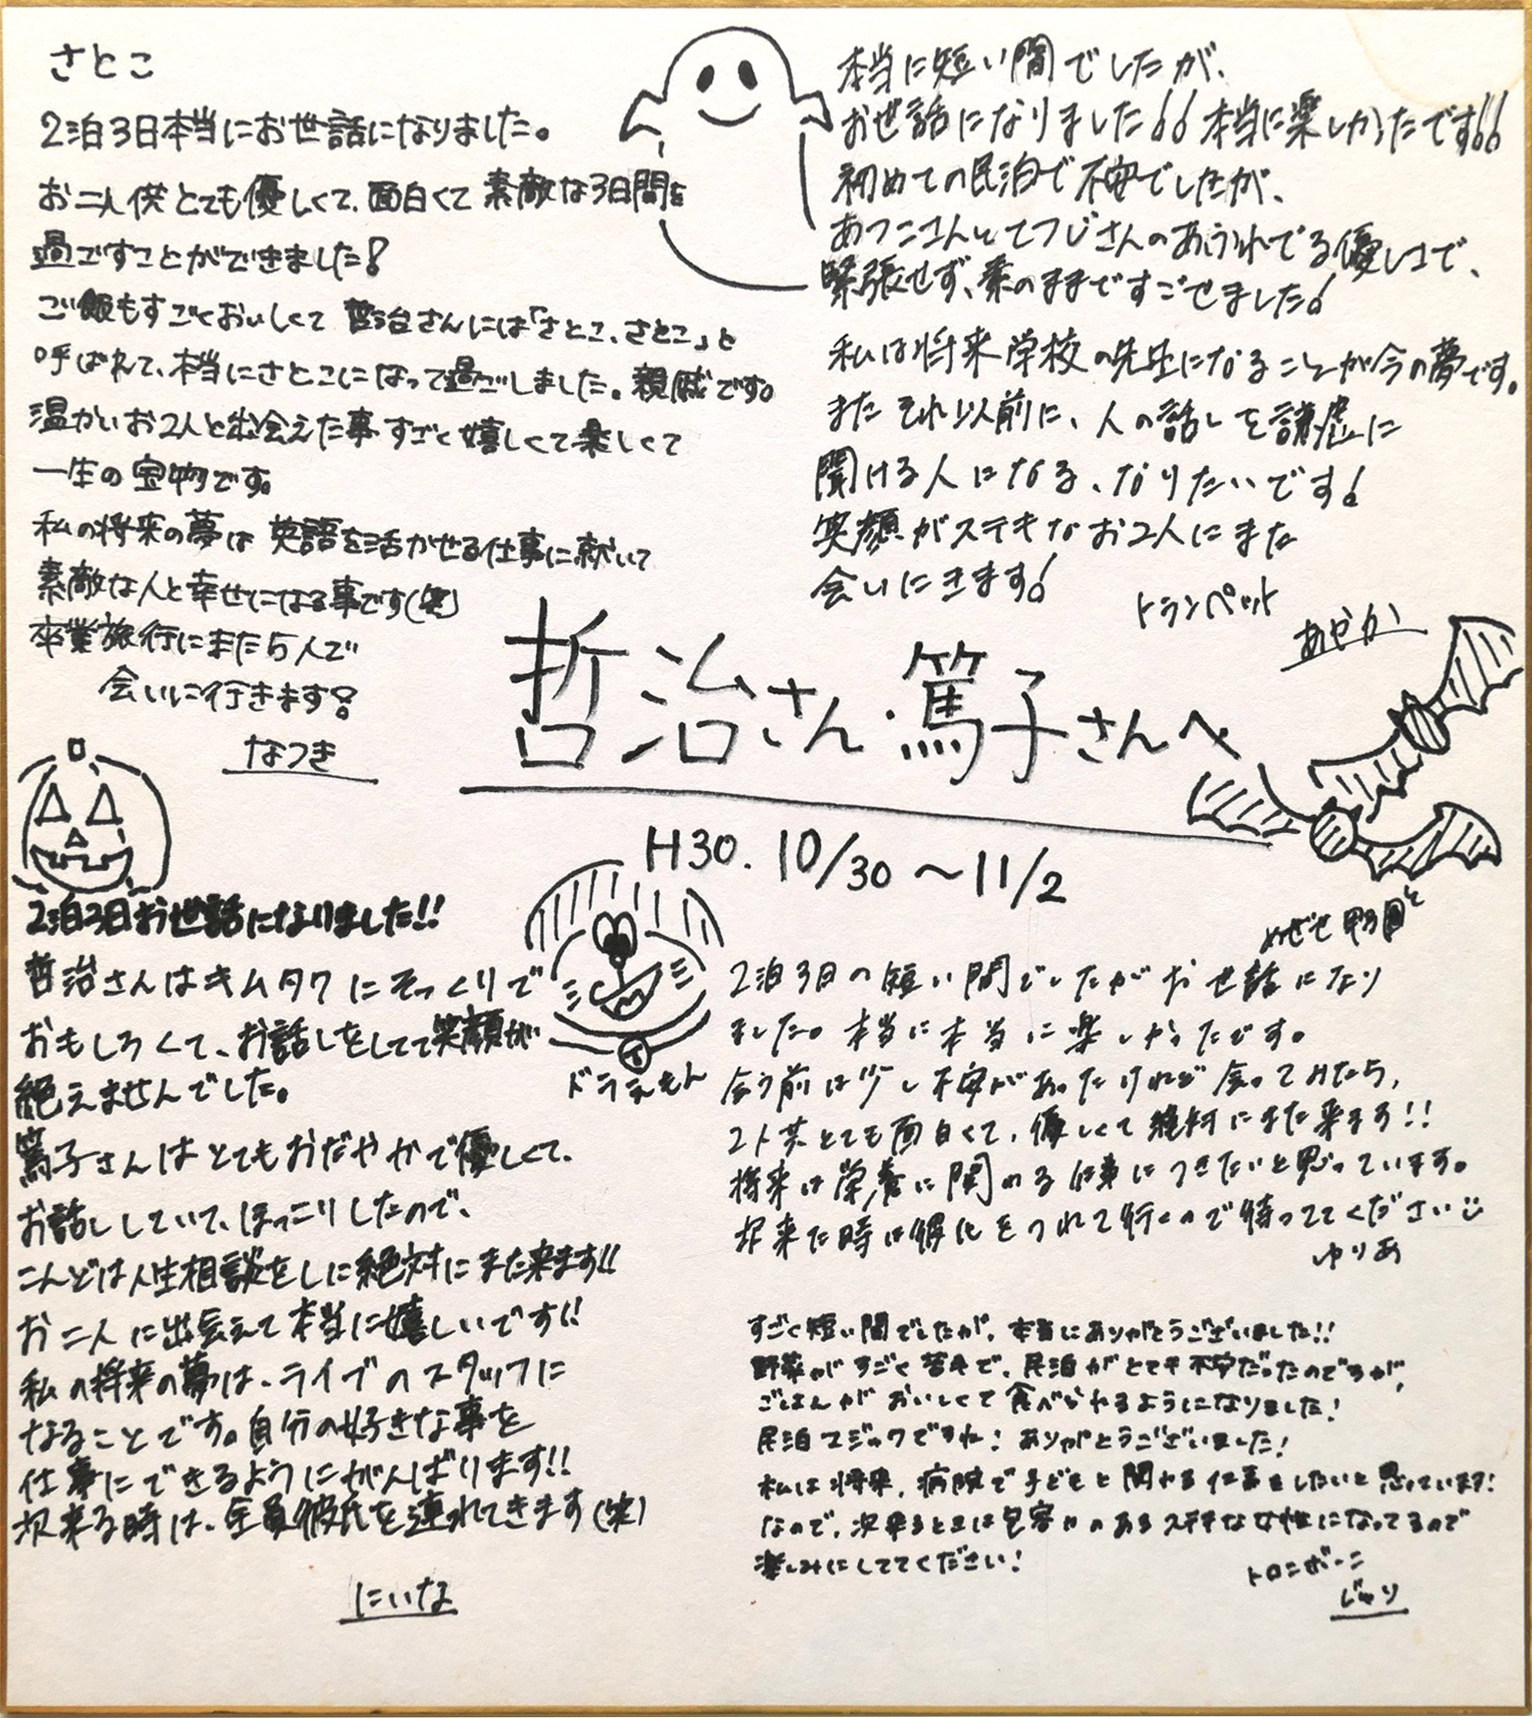 さとこ
2泊3日本当にお世話になりました。
お二人供とても優しくて、面白くて素敵な3日間を
過ごすことができました!
ご飯もすごくおいしくて 哲治さんには「さとこ、さとこ」と
呼ばれて、本当にさとこになって過ごしました。親戚です。
温かいお2人と出会えた事すごく嬉しくて楽しくて
一生の宝物です。
私の将来の夢は 英語を活かせる仕事に就いて
素敵な人と幸せになる事です(笑)
卒業旅行にまた5人で
会いに行きます!
なつき
本当に短い間でしたが、
お世話になりました!! 本当に楽しかったです!!
初めての民泊で不安でしたが、
あつこさんとてつじさんのあふれでる優しさで、
緊張せず、素のままですごせました!
私は将来学校の先生になることが今の夢です。
またそれ以前に、人の話しを謙虚に
聞ける人になる、なりたいです!
笑顔がステキなお2人にまた
会いにきます!
トランペット
あやか
哲治さん・篤子さんへ
H30. 10/30 〜11/2
2泊3日お世話になりました!!
哲治さんはキムタクにそっくりで
おもしろくて、お話しをしてて笑顔が
絶えませんでした。
篤子さんはとてもおだやかで優しくて、
お話ししていて、ほっこりしたので、
こんどは人生相談をしに絶対にまた来ます!!
お二人に出会えて本当に嬉しいです!!
私の将来の夢は、ライブのスタッフに
なることです。自分の好きな事を
仕事にできるようにがんばります!!
次来る時は、全員彼氏を連れてきます(笑)
にいな
ドラえもん
めざせ
2泊3日の短い間でしたがお世話になり
ました。本当に本当に楽しかったです。
会う前は少し不安があったけれど会ってみたら、
2人共とても面白くて、優しくて絶対にまた来ます!!
将来は栄養に関わる仕事につきたいと思っています。
次来た時は彼氏をつれて行くので待っててください
ゆりあ
すごく短い間でしたが、本当にありがとうございました!!
野菜がすごく苦手で、民泊がとても不安だったのですが、
ごはんがおいしくて食べられるようになりました!
民泊マジックですね! ありがとうございました!
私は将来、病院で子どもと関わる仕事をしたいと思っています!
なので、次来るときは包容力のあるステキな女性になってるので
楽しみにしててください!
トロンボーン
じゅり